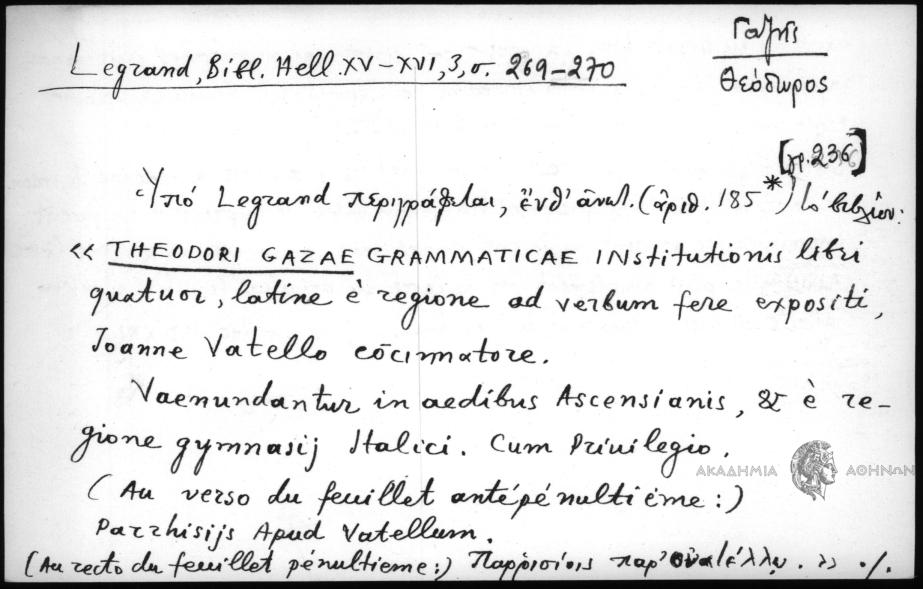 Γαζῆς
Θεόδωρος
Legrand, Bibl. Hell. XV-XVI, 3, σ. 269-270
[γρ. 236]
Ὑπό Legrand περιγράφεται, ἔνθ' ἀνωτ. (ἀριθ. 185*) τό βιβλίον:
« THEODORI GAZAE GRAMMATICAE INstitutionis libri
quatuor, latine è regione ad verbum fere expositi,
Joanne Vatello cōcinnatore.
Vaenundantur in aedibus Ascensianis, & è re-
gione gymnasij Italici. Cum Priuilegio.
ΑΚΑΔΗΜΙΑ ΑΘΗΝΩΝ
(Au verso du feuillet antépénultième:)
Parrhisijs Apud Vatellum.
(Au recto du feuillet pénultieme:) Παρρισίοις παρ' . » ./.